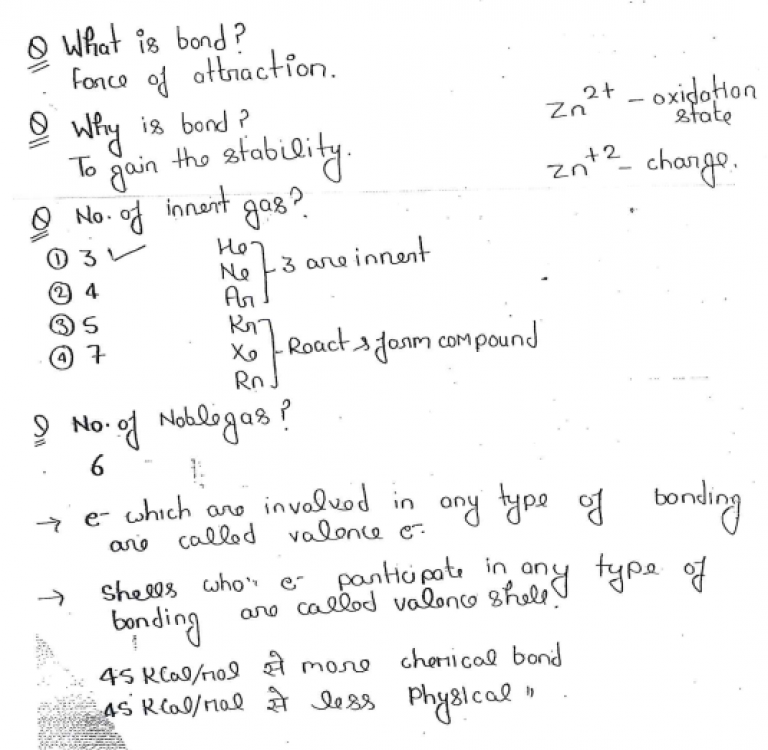 Q What is bond?
force of attraction.
Q Why is bond?
To gain the stability.
Zn²⁺ - oxidation
state
Zn⁺² - change.
Q No. of innert gas?
① 3 ✓
② 4
③ 5
④ 7
He
Ne
Ar
3 are innert
Kr
Xe
Rn
React & form compound
Q No. of Noble gas?
6
→ e⁻ which are involved in any type of bonding
are called valence e⁻.
→ Shells who's e⁻ participate in any type of
bonding are called valence shell.
45 KCal/mol से more chemical bond
45 KCal/mol से less Physical "